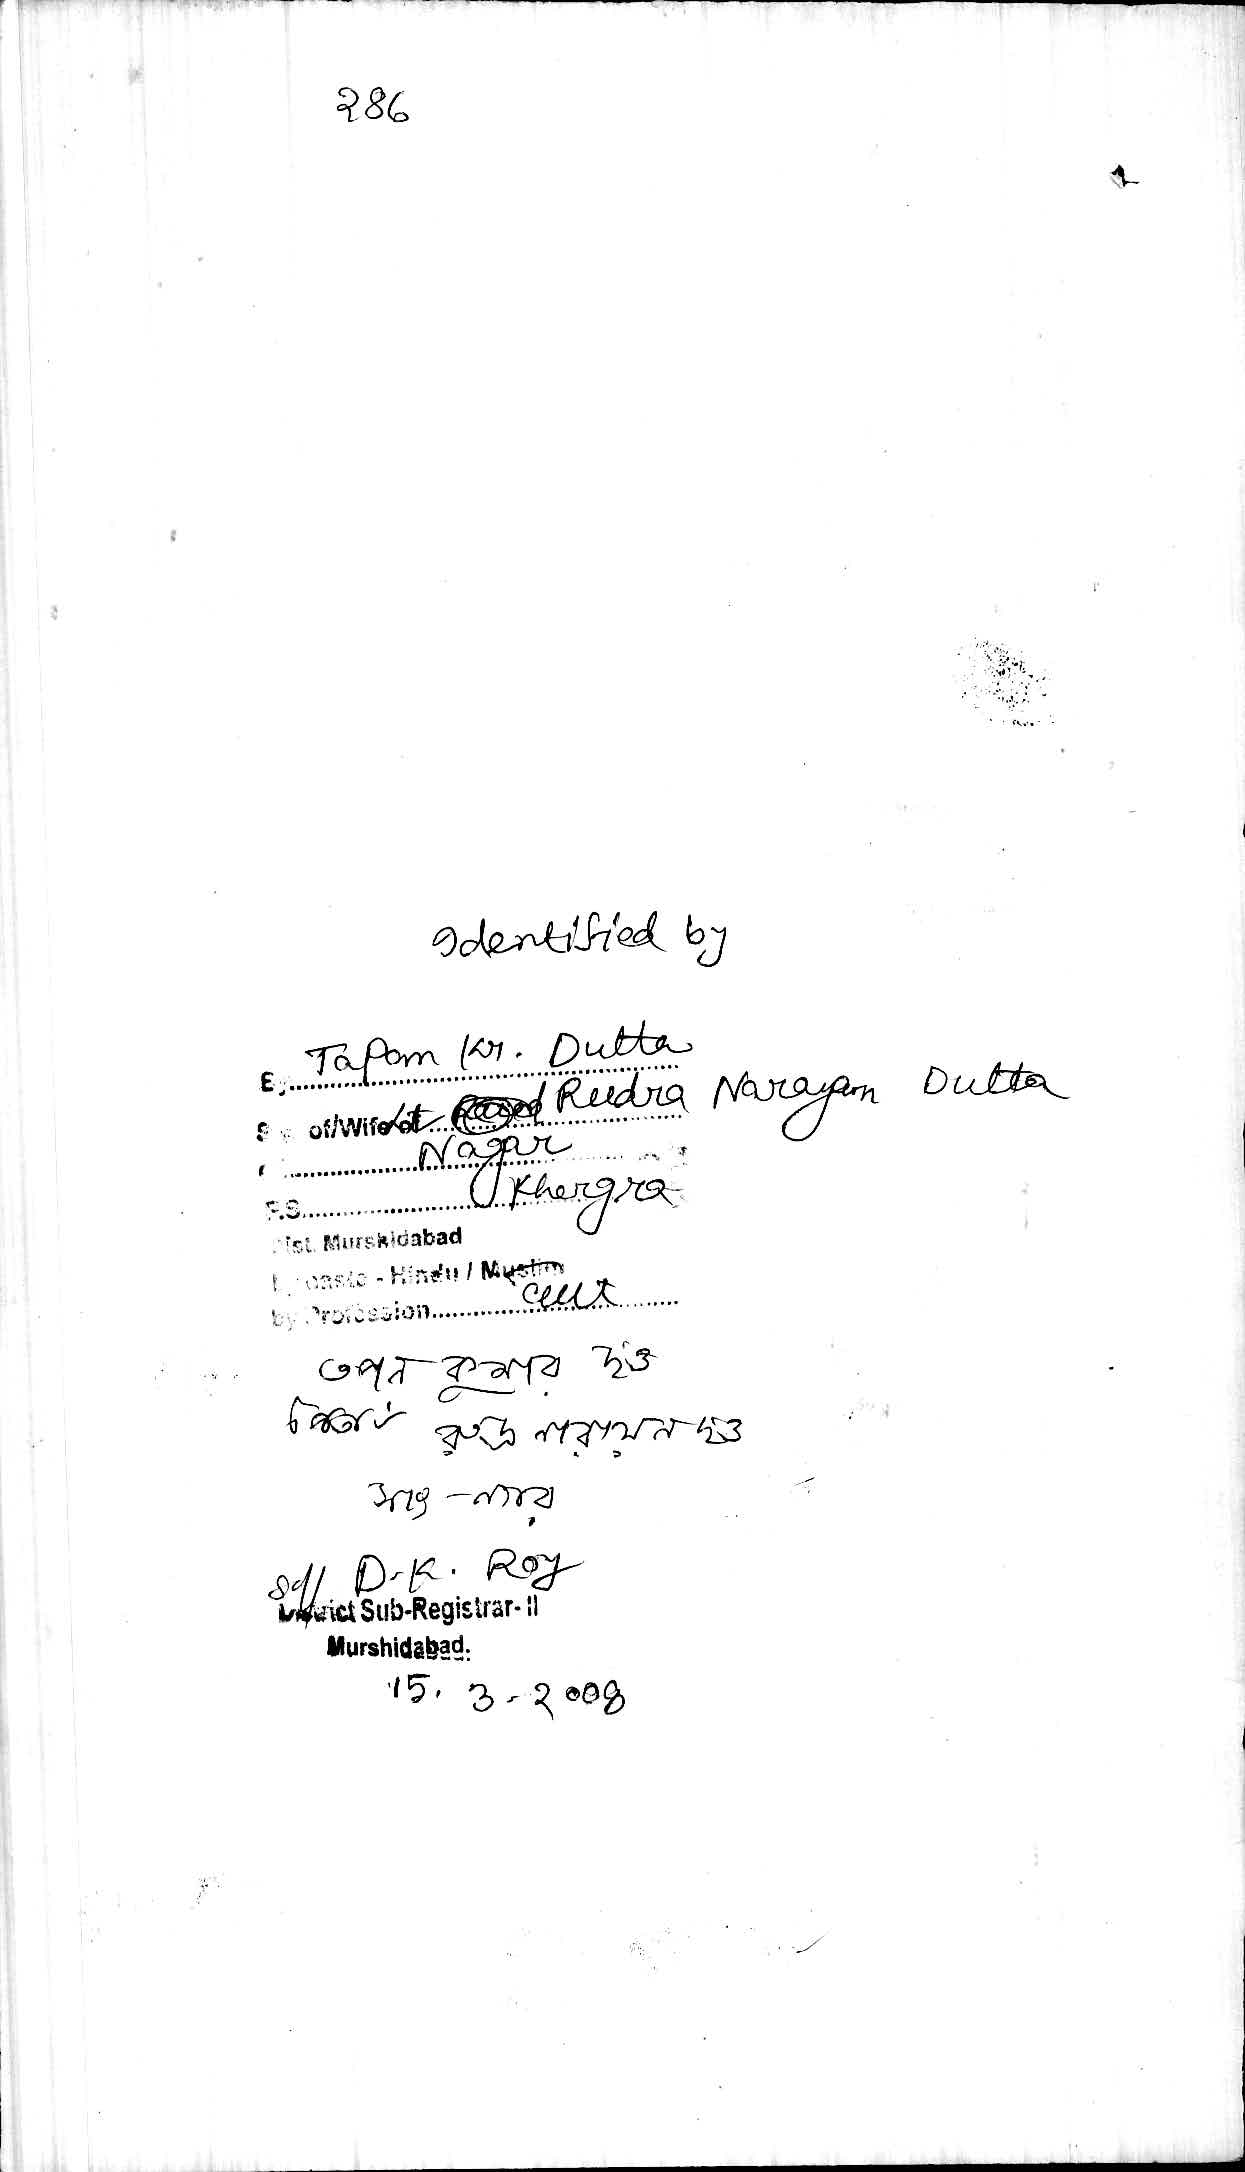 286
Identified by
By Tapan Kr. Dutta
of/Wife of Lt Rudra Narayan Dutta
Nagar
P.S. Khargra
Dist. Murshidabad
by caste - Hindu / Muslim
by Profession cult
তপন কুমার দত্ত
পিতা ৺ রুদ্র নারায়ন দত্ত
সাং - নগর
Sd/ D.K. Roy
District Sub-Registrar-II
Murshidabad.
15. 3 - 2008